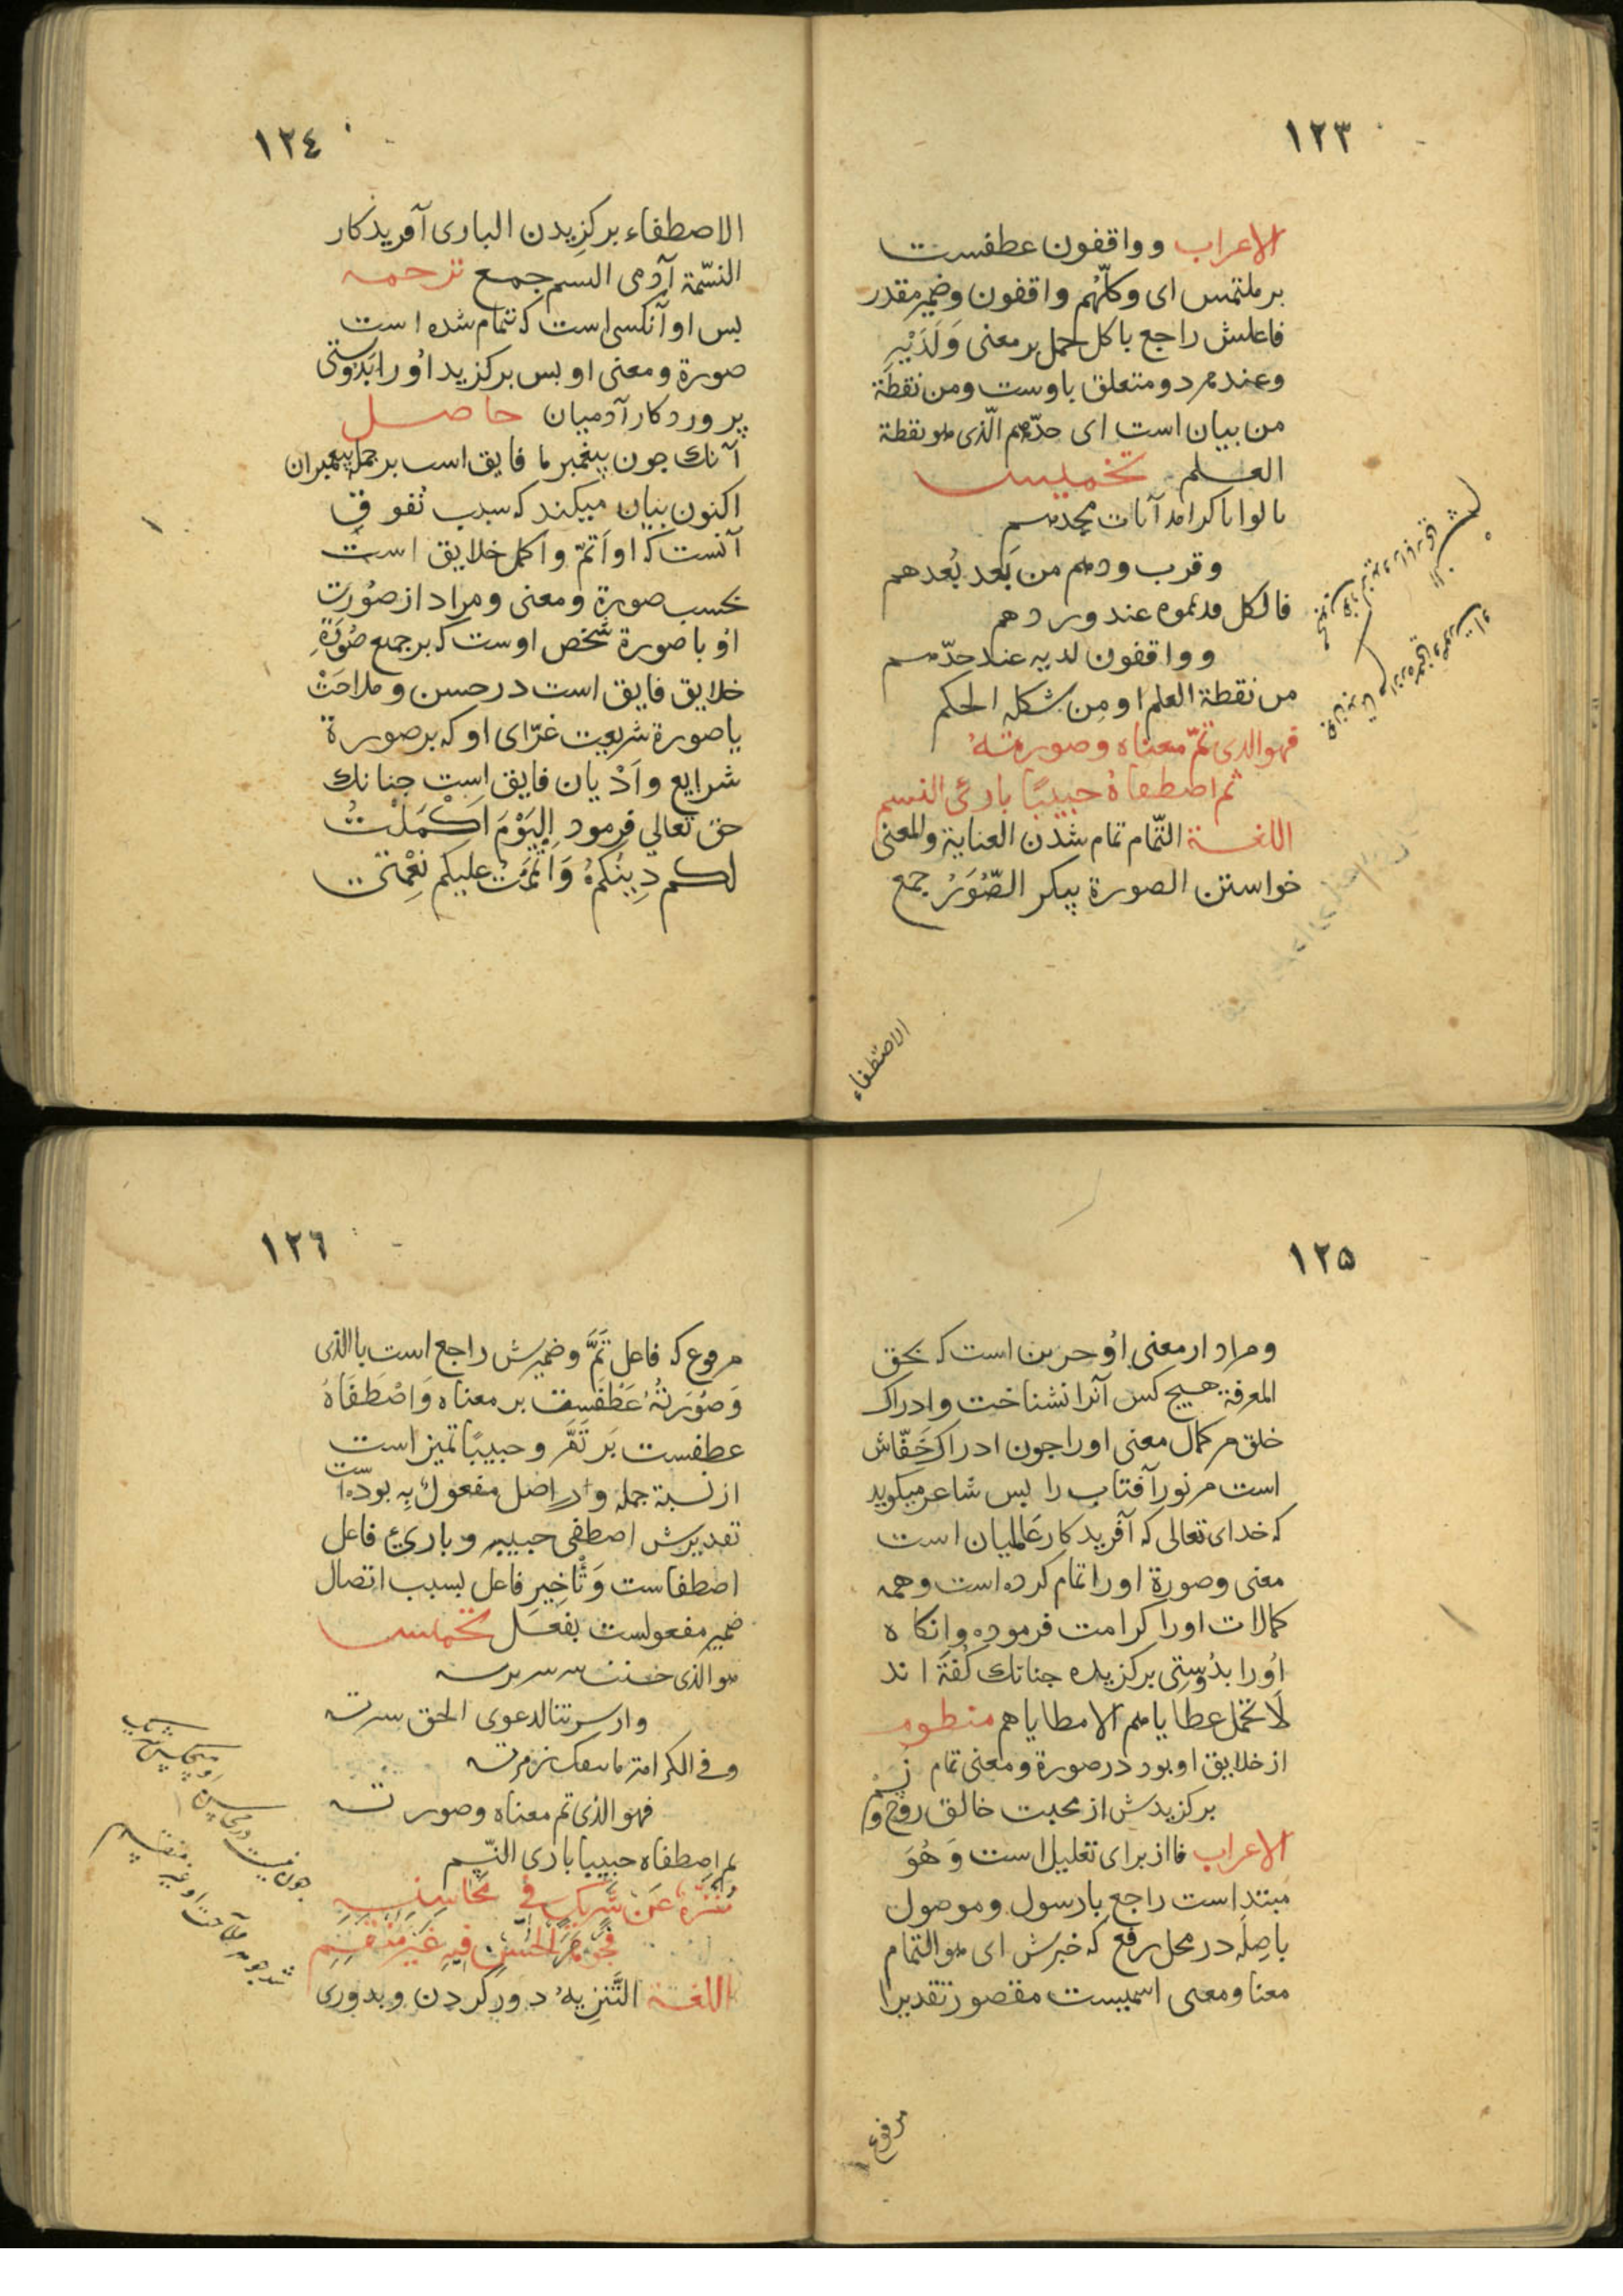 ١٢٣
الاعراب و واقفون عطفست
بر ملتمس ای وکلّهم واقفون وضمیر مقدر
فاعلش راجع باکل حمل بر معنی وَلَدَیْهِ
وعند هر دو متعلق باوست ومن نقطة
من بیان است ای حدّهم الّذی هو نقطة
العلم تخمیس
نالوا باکرامه آیات مجدهم
وقرب ودهم من بَعد بُعدهم
فالکل عند وردهم
و واقفون لدیه عند حدّهم
من نقطة العلم او مِن شکلة الحکم
فهو الذی تمّ معناه وصورتهُ
ثم اصطفاهُ حبیبًا بارئ النسم
اللغة التّمام تمام شدن العنایة والمعنی
خواستن الصورة پیکر الصُّوَرُ جمع
الاصطفاء
١٢٤
الاصطفاء برکزیدن الباری آفریدکار
النسّمة آدمی النسم جمع ترجمه
بس او آنکسی است که تمام شده است
صورة ومعنی او بس برکزید اُو را بدوستی
پروردکار آدمیان حاصل
آنك جون پیغمبر ما فایق است بر جمله پیغمبران
اکنون بیان میکند که سبب تفوق
آنست که او اَتمّ و اکمل خلایق است
بحسب صورة ومعنی ومراد از صُورَت
اُو با صورة شخص اوست که بر جمیع صُوَرَةِ
خلایق فایق است در حسن و ملاحَتْ
یا صورة شریعت غرّای او که بر صورة
شرایع واَدْیان فایق است جنانك
حق تعالی فرمود اَلیَوْمَ اَکْمَلْتُ
لکم دِینُکمُ وَاَتْمَمْتُ علیکم نِعْمَتی
١٢٥
ومراد از معنی اُو حزین است که بحق
المعرفة هیچ کس آنرا نشناخت وادراك
خلق مر کمال معنی او را جون ادراك خَفّاش
است مر نور آفتاب را بس شاعر میکوید
که خدای تعالی که آفریدکار عَالمیان است
معنی وصورة او را تمام کرده است وهمه
کمالات او را کرامت فرموده وانکاه
اُو را بدُوستِی برکزیده جنانك کُفتَه اند
لَا تحمل عطایاهم الا مطایاهم منظوم
از خلایق او بود در صورة ومعنی تمام
برکزیدش از محبت خالق روح و
الاعراب فا از برای تعلیل است وَهُوَ
مبتدا است راجع با رسول و موصول
با صِلَه در محل رفع که خبرش ای هو التمام
معنا ومعنی اسمیست مقصور تقدیرا
مرفوع
١٢٦
مرفوع که فاعل تَمَّ وضمیرش راجع است با الذی
وَصُوَرَتُهُ عَطْفَست بر معناه وَاصْطَفَاهُ
عطفست بَر تَمَّ و حبیبًا تمیز است
از نسبة جمله و در اصل مفعول بِه بودّه است
تقدیرش اصطفی حبیبه وبارئ فاعل
اصطفاست وَتْأخِیرِ فاعل بسبب اتصال
ضمیر مفعولست بفعل تخمیس
هو الذی حسنت سریرته
وارسلتنا لدعوی الحق
وفی الکرامة
فهو الذی تم معناه وصورته
ثم اصطفاه حبیبا باری النّسم
مُنَزَّهٌ عَن شَرِیكٍ فی مَحَاسِنِهِ
فَجَوهَرُ الحُسنِ فِیهِ غَیرُ مُنقَسِمِ
اللغة التَّنزِیهُ دور کردن وبدوری